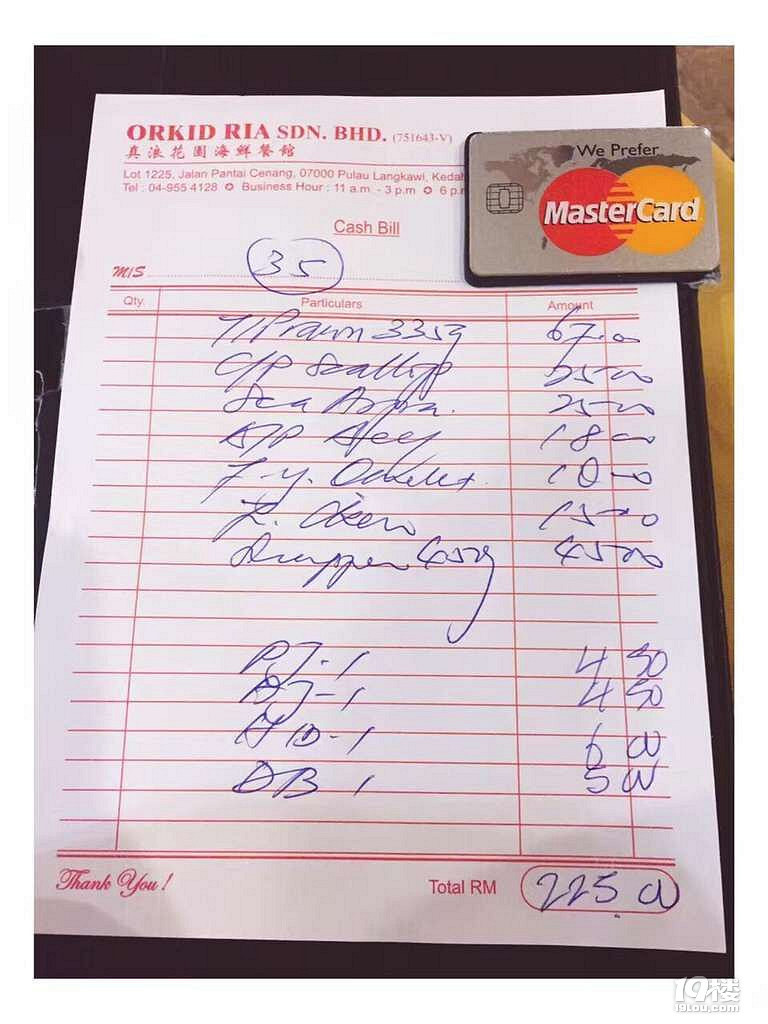 ORKID RIA SDN. BHD. (751643-V)
真浪花園海鮮餐館
Lot 1225, Jalan Pantai Cenang, 07000 Pulau Langkawi, Kedah
Tel : 04-955 4128 ✪ Business Hour : 11 a.m. - 3 p.m ✪ 6 p.
We Prefer
MasterCard
Cash Bill
M/S 35
Qty. Particulars Amount
T/Prawn 335g 67.00
C/P Scallop 25 00
Sea 25 00
18 00
F.Y. 10 00
15 00
450g 45 00
PJ-1 4 50
4 50
6 00
DB 1 5 00
Thank You !
Total RM 225.00
19楼
19lou.com